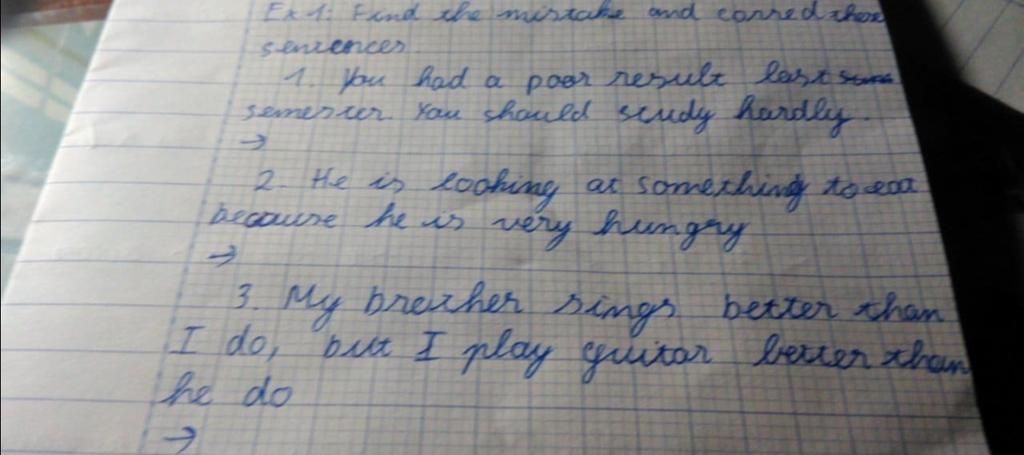 Ex 1: Find the mistake and correct these
sentences
1. You had a poor result last
semester. You should study hardly.
→
2. He is looking at something to eat
because he is very hungry
→
3. My brother sings better than
I do, but I play guitar better than
he do
→